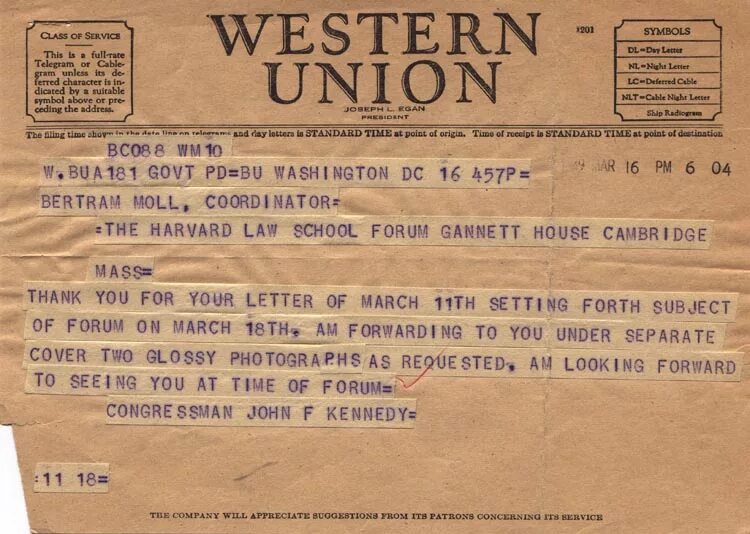 CLASS OF SERVICE
This is a full-rate
Telegram or Cable-
gram unless its de-
ferred character is in-
dicated by a suitable
symbol above or pre-
ceding the address.
WESTERN
UNION
JOSEPH L. EGAN
PRESIDENT
1201
SYMBOLS
DL=Day Letter
NL=Night Letter
LC=Deferred Cable
NLT=Cable Night Letter
Ship Radiogram
The filing time shown in the date line on telegrams and day letters is STANDARD TIME at point of origin. Time of receipt is STANDARD TIME at point of destination
BC088 WM10
W.BUA181 GOVT PD=BU WASHINGTON DC 16 457P=
9 MAR 16 PM 6 04
BERTRAM MOLL, COORDINATOR=
=THE HARVARD LAW SCHOOL FORUM GANNETT HOUSE CAMBRIDGE
MASS=
THANK YOU FOR YOUR LETTER OF MARCH 11TH SETTING FORTH SUBJECT
OF FORUM ON MARCH 18TH. AM FORWARDING TO YOU UNDER SEPARATE
COVER TWO GLOSSY PHOTOGRAPHS AS REQUESTED. AM LOOKING FORWARD
TO SEEING YOU AT TIME OF FORUM=
CONGRESSMAN JOHN F KENNEDY=
:11 18=
THE COMPANY WILL APPRECIATE SUGGESTIONS FROM ITS PATRONS CONCERNING ITS SERVICE